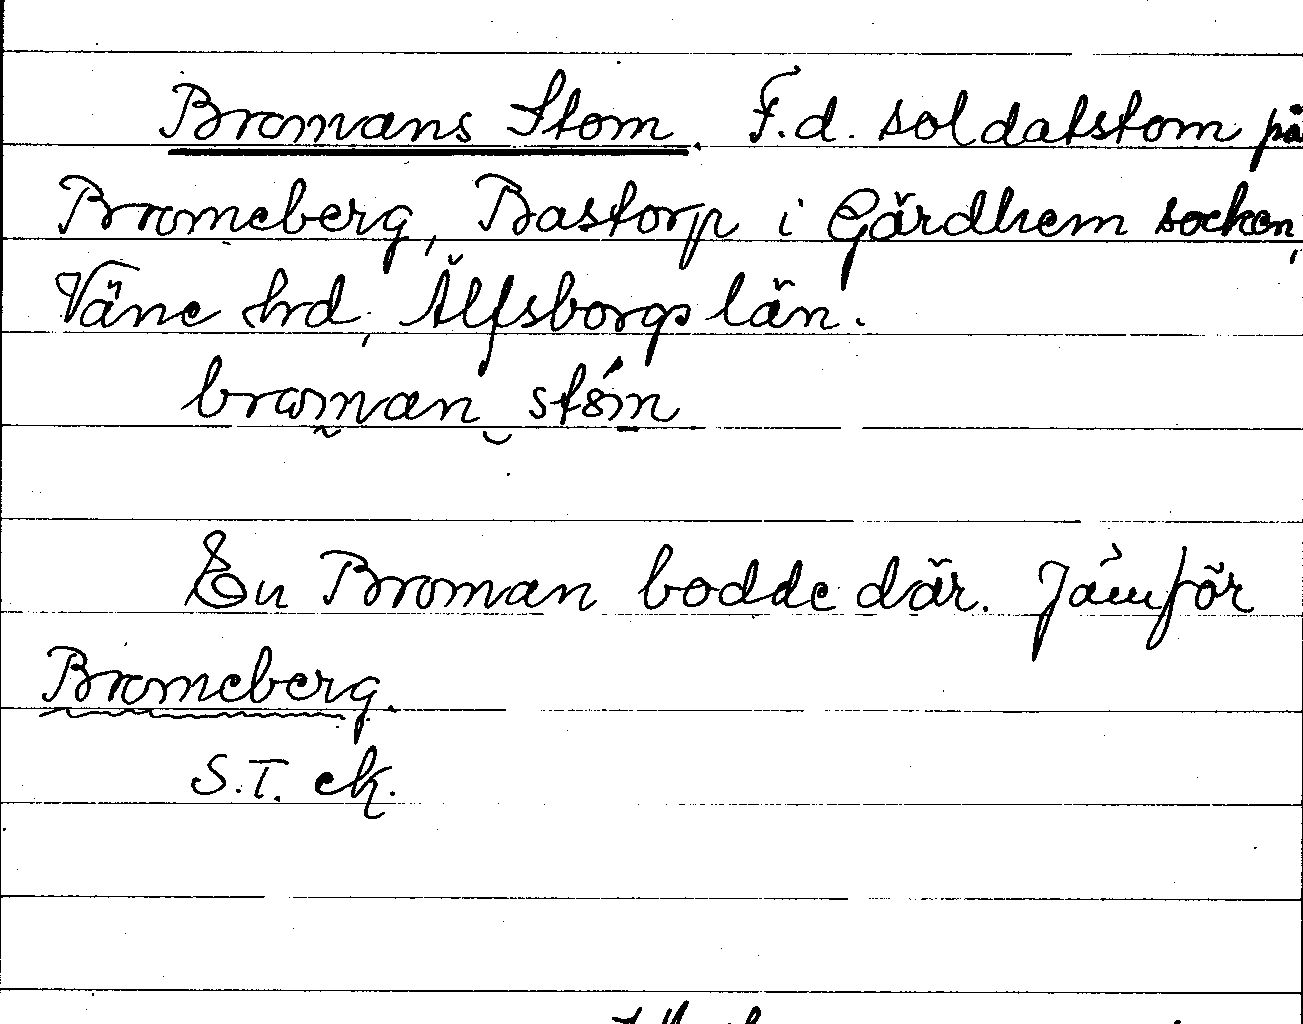 Bromans Stom. F.d. soldatstom på
Bromeberg, Bastorp i Gärdhem socken,
Väne hrd, Älfsborgs län.
broman stóm
En Broman bodde där. Jämför
Bromeberg.
S.T. ek.